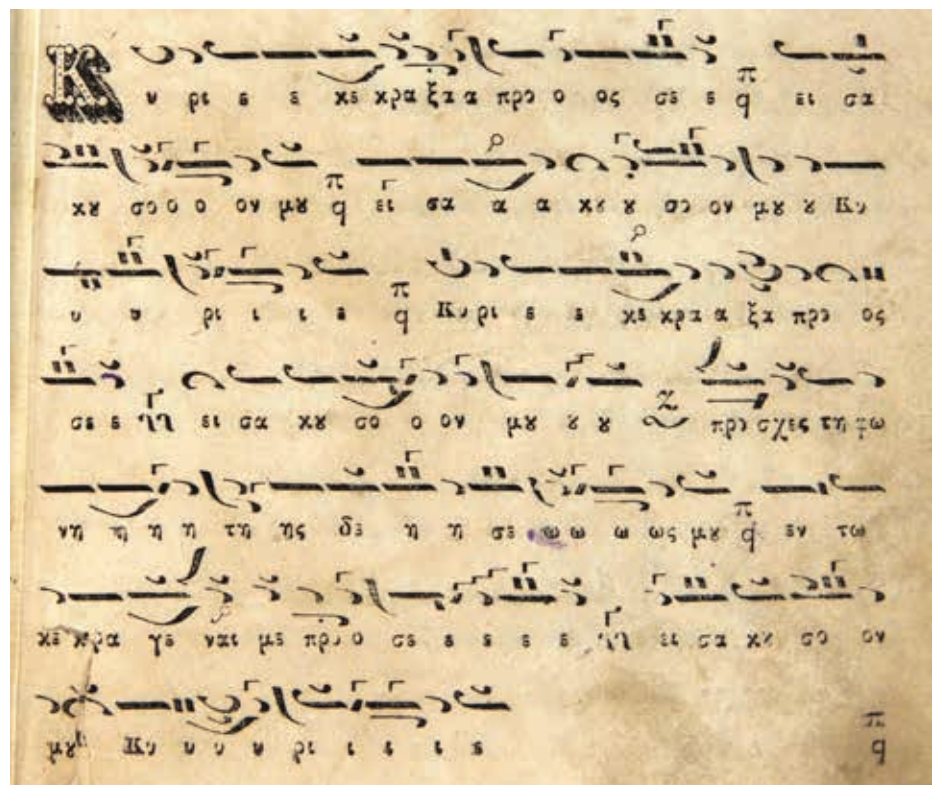 Κ υ ρι ε ε κε κρα ξα α προ ο ος σε ε π q ει σα
κȣ σο ο ο ον μȣ π q ει σα α α κȣ ȣ σο ον μȣ ȣ Κυ
υ υ ρι ι ι ε π q Κυ ρι ε ε κε κρα α ξα προ ος
σε ε ει σα κȣ σο ο ον μȣ ȣ ȣ προ σχες τη φω
νη η η η τη ης δε η η σε ω ω ω ως μȣ π q εν τω
κε κρα γε ναι με προ ο σε ε ε ε ε ε ει σα κȣ σο ον
μȣ Κυ υ υ υ ρι ι ι ε π q